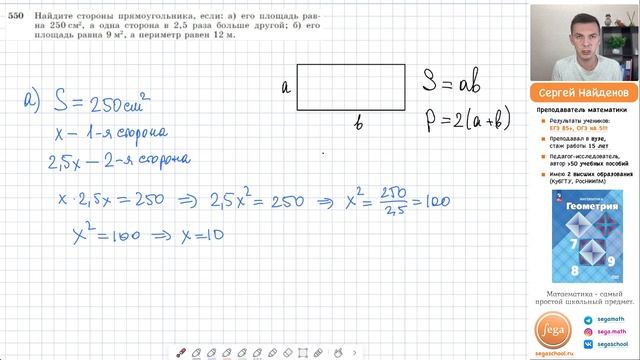 550 Найдите стороны прямоугольника, если: а) его площадь рав-
на 250 см², а одна сторона в 2,5 раза больше другой; б) его
площадь равна 9 м², а периметр равен 12 м.
а) S = 250см²
x – 1-я сторона
2,5x – 2-я сторона
x · 2,5x = 250 ⇒ 2,5x² = 250 ⇒ x² = 250/2,5 = 100
x² = 100 ⇒ x = 10
a
в
S = aв
P = 2(a+в)
Сергей Найденов
Преподаватель математики
Результаты учеников:
ЕГЭ 85+, ОГЭ на 5!!!
Преподавал в вузе,
стаж работы 15 лет
Педагог-исследователь,
автор >50 учебных пособий
Имею 2 высших образования
(КубГТУ, РосНИИПМ)
МАТЕМАТИКА
Геометрия
7
8
9
Математика - самый
простой школьный предмет.
fega
segamath
sega.math
segaschool
segaschool.ru